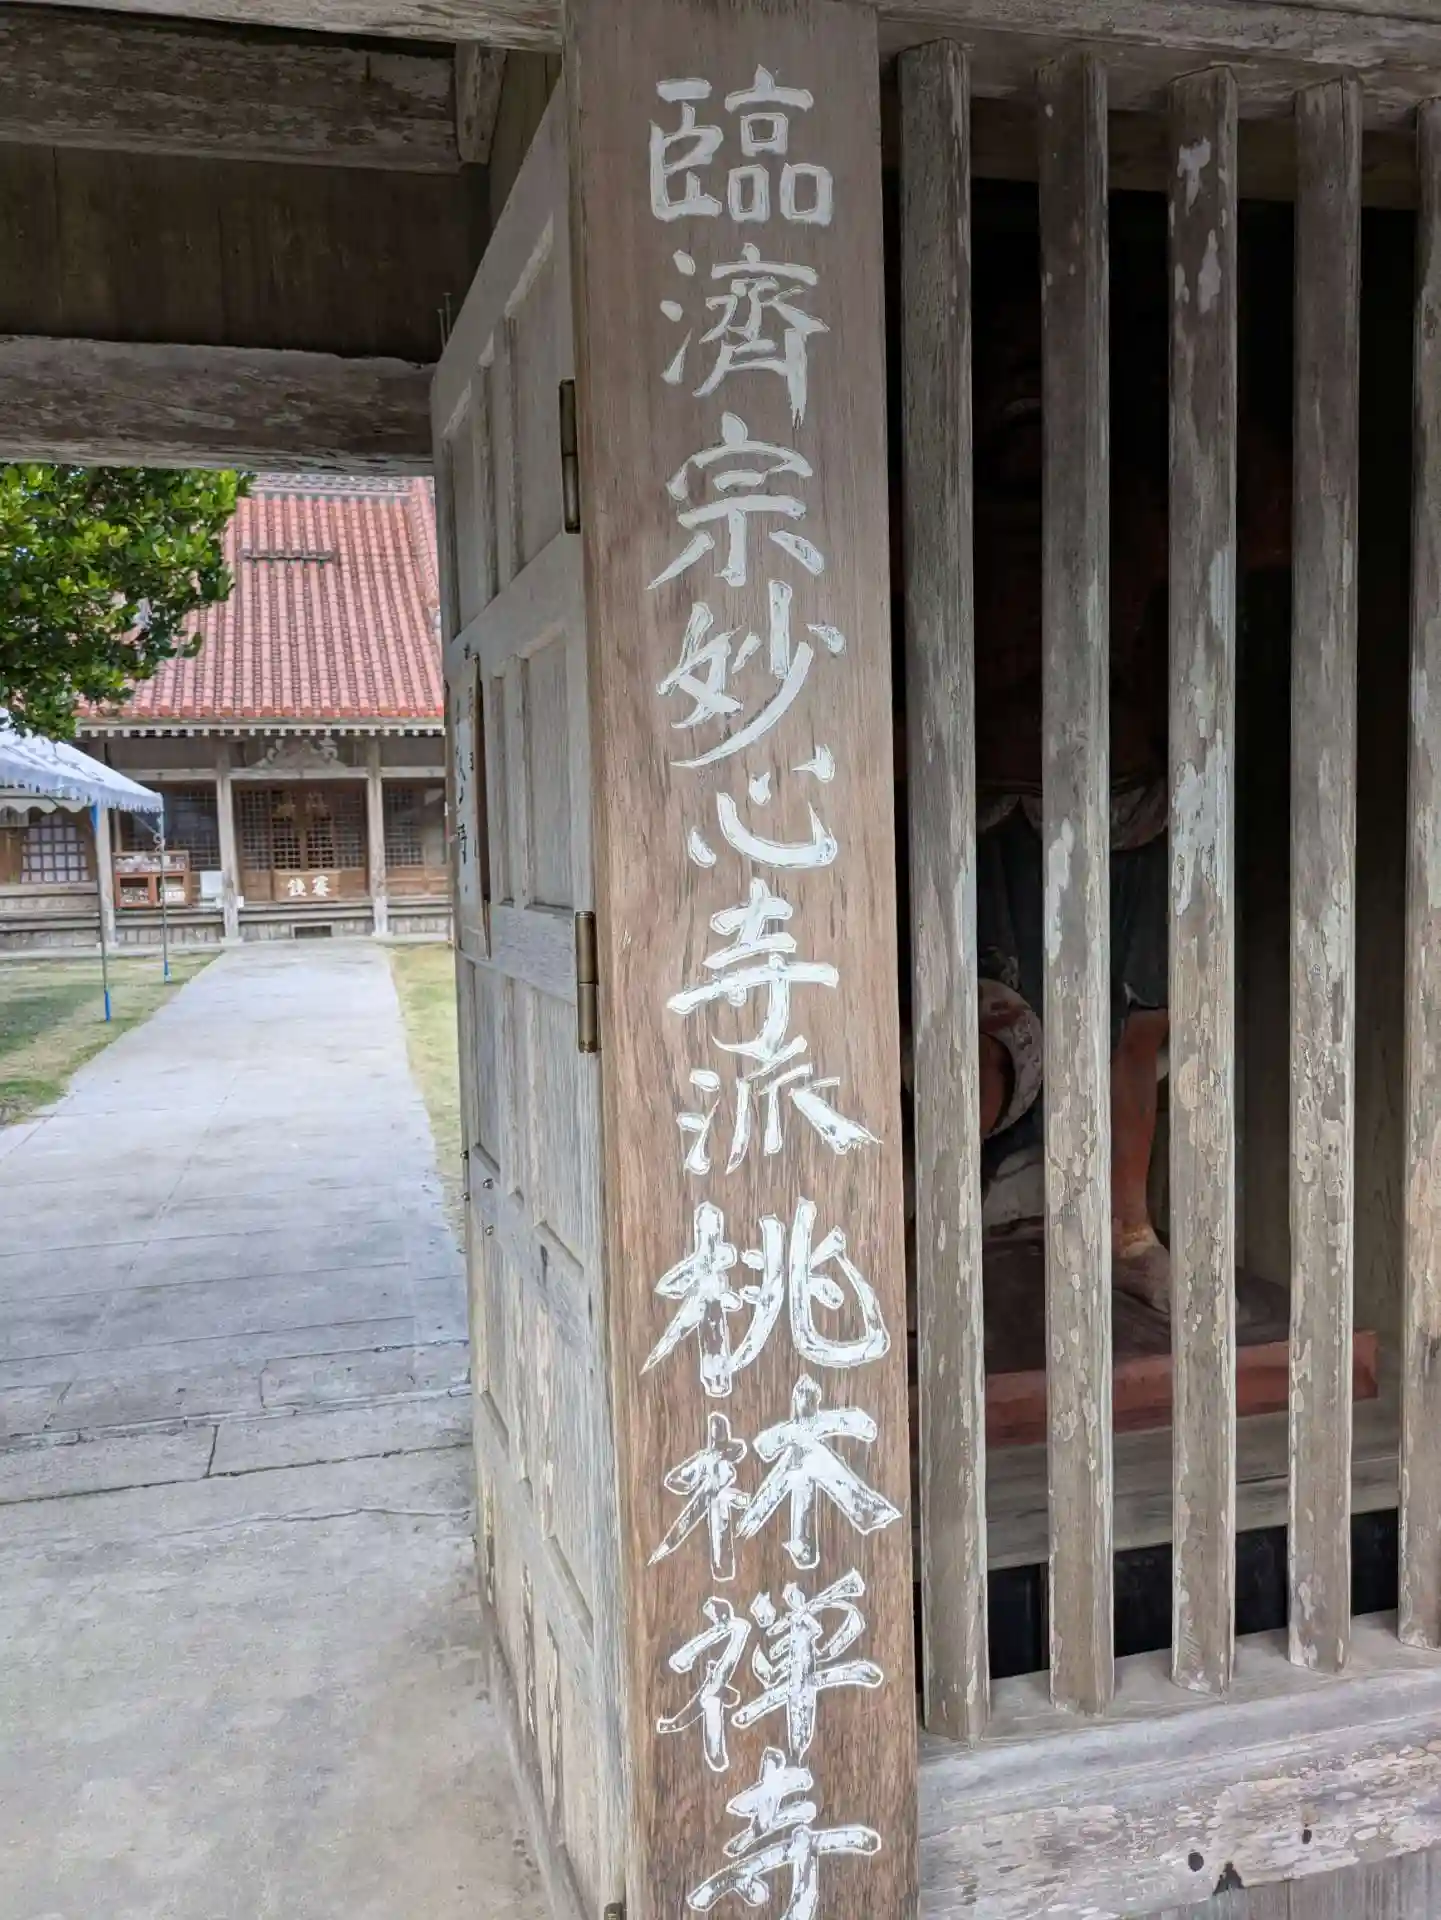 臨濟宗妙心寺派桃林禅寺